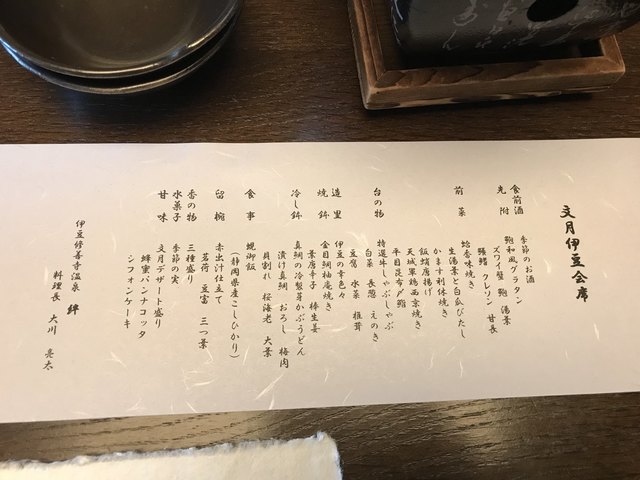 文月伊豆会席
食前酒 季節のお酒
先附 鮑和風グラタン
ズワイ蟹 鮑 湯葉
クレソン 甘長
前菜 蛤香味焼き
生湯葉と白瓜びたし
かます利休焼き
飯蛸唐揚げ
天城軍鶏西京焼き
平目昆布〆鮨
台の物 特選牛しゃぶしゃぶ
白菜 長葱 えのき
豆腐 水菜 椎茸
造里 伊豆の幸色々
焼鉢 金目鯛柚庵焼き
葉唐辛子 棒生姜
冷し鉢 真鯛の冷製芽かぶうどん
漬け真鯛 おろし 梅肉
貝割れ 桜海老 大葉
食事 蜆御飯
(静岡県産こしひかり)
留椀 赤出汁仕立て
茗荷 豆富 三つ葉
香の物 三種盛り
水菓子 季節の実
甘味 文月デザート盛り
蜂蜜パンナコッタ
シフォンケーキ
伊豆修善寺温泉 絆
料理長 大川 亮太